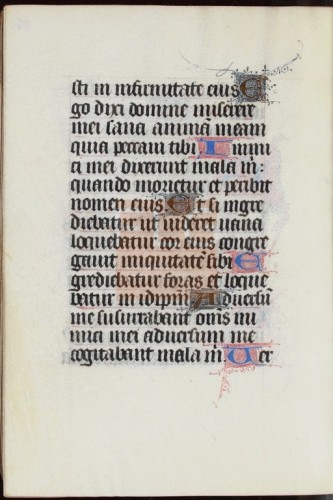 sti in infirmitate eius E
go dixi domine miserere
mei sana animā meam
quia peccaui tibi I nimi
ci mei dixerunt mala m̄:
quando morietur et peribit
nomen eius E t si ingre
diebatur ut uideret uana
loquebatur cor eius congre
gauit iniquitatē sibi E
grediebatur foras et loque
batur in idipm̄ A duersū
me susurrabant om̄s ini
mici mei aduersum me
cogitabant mala m̄. U er